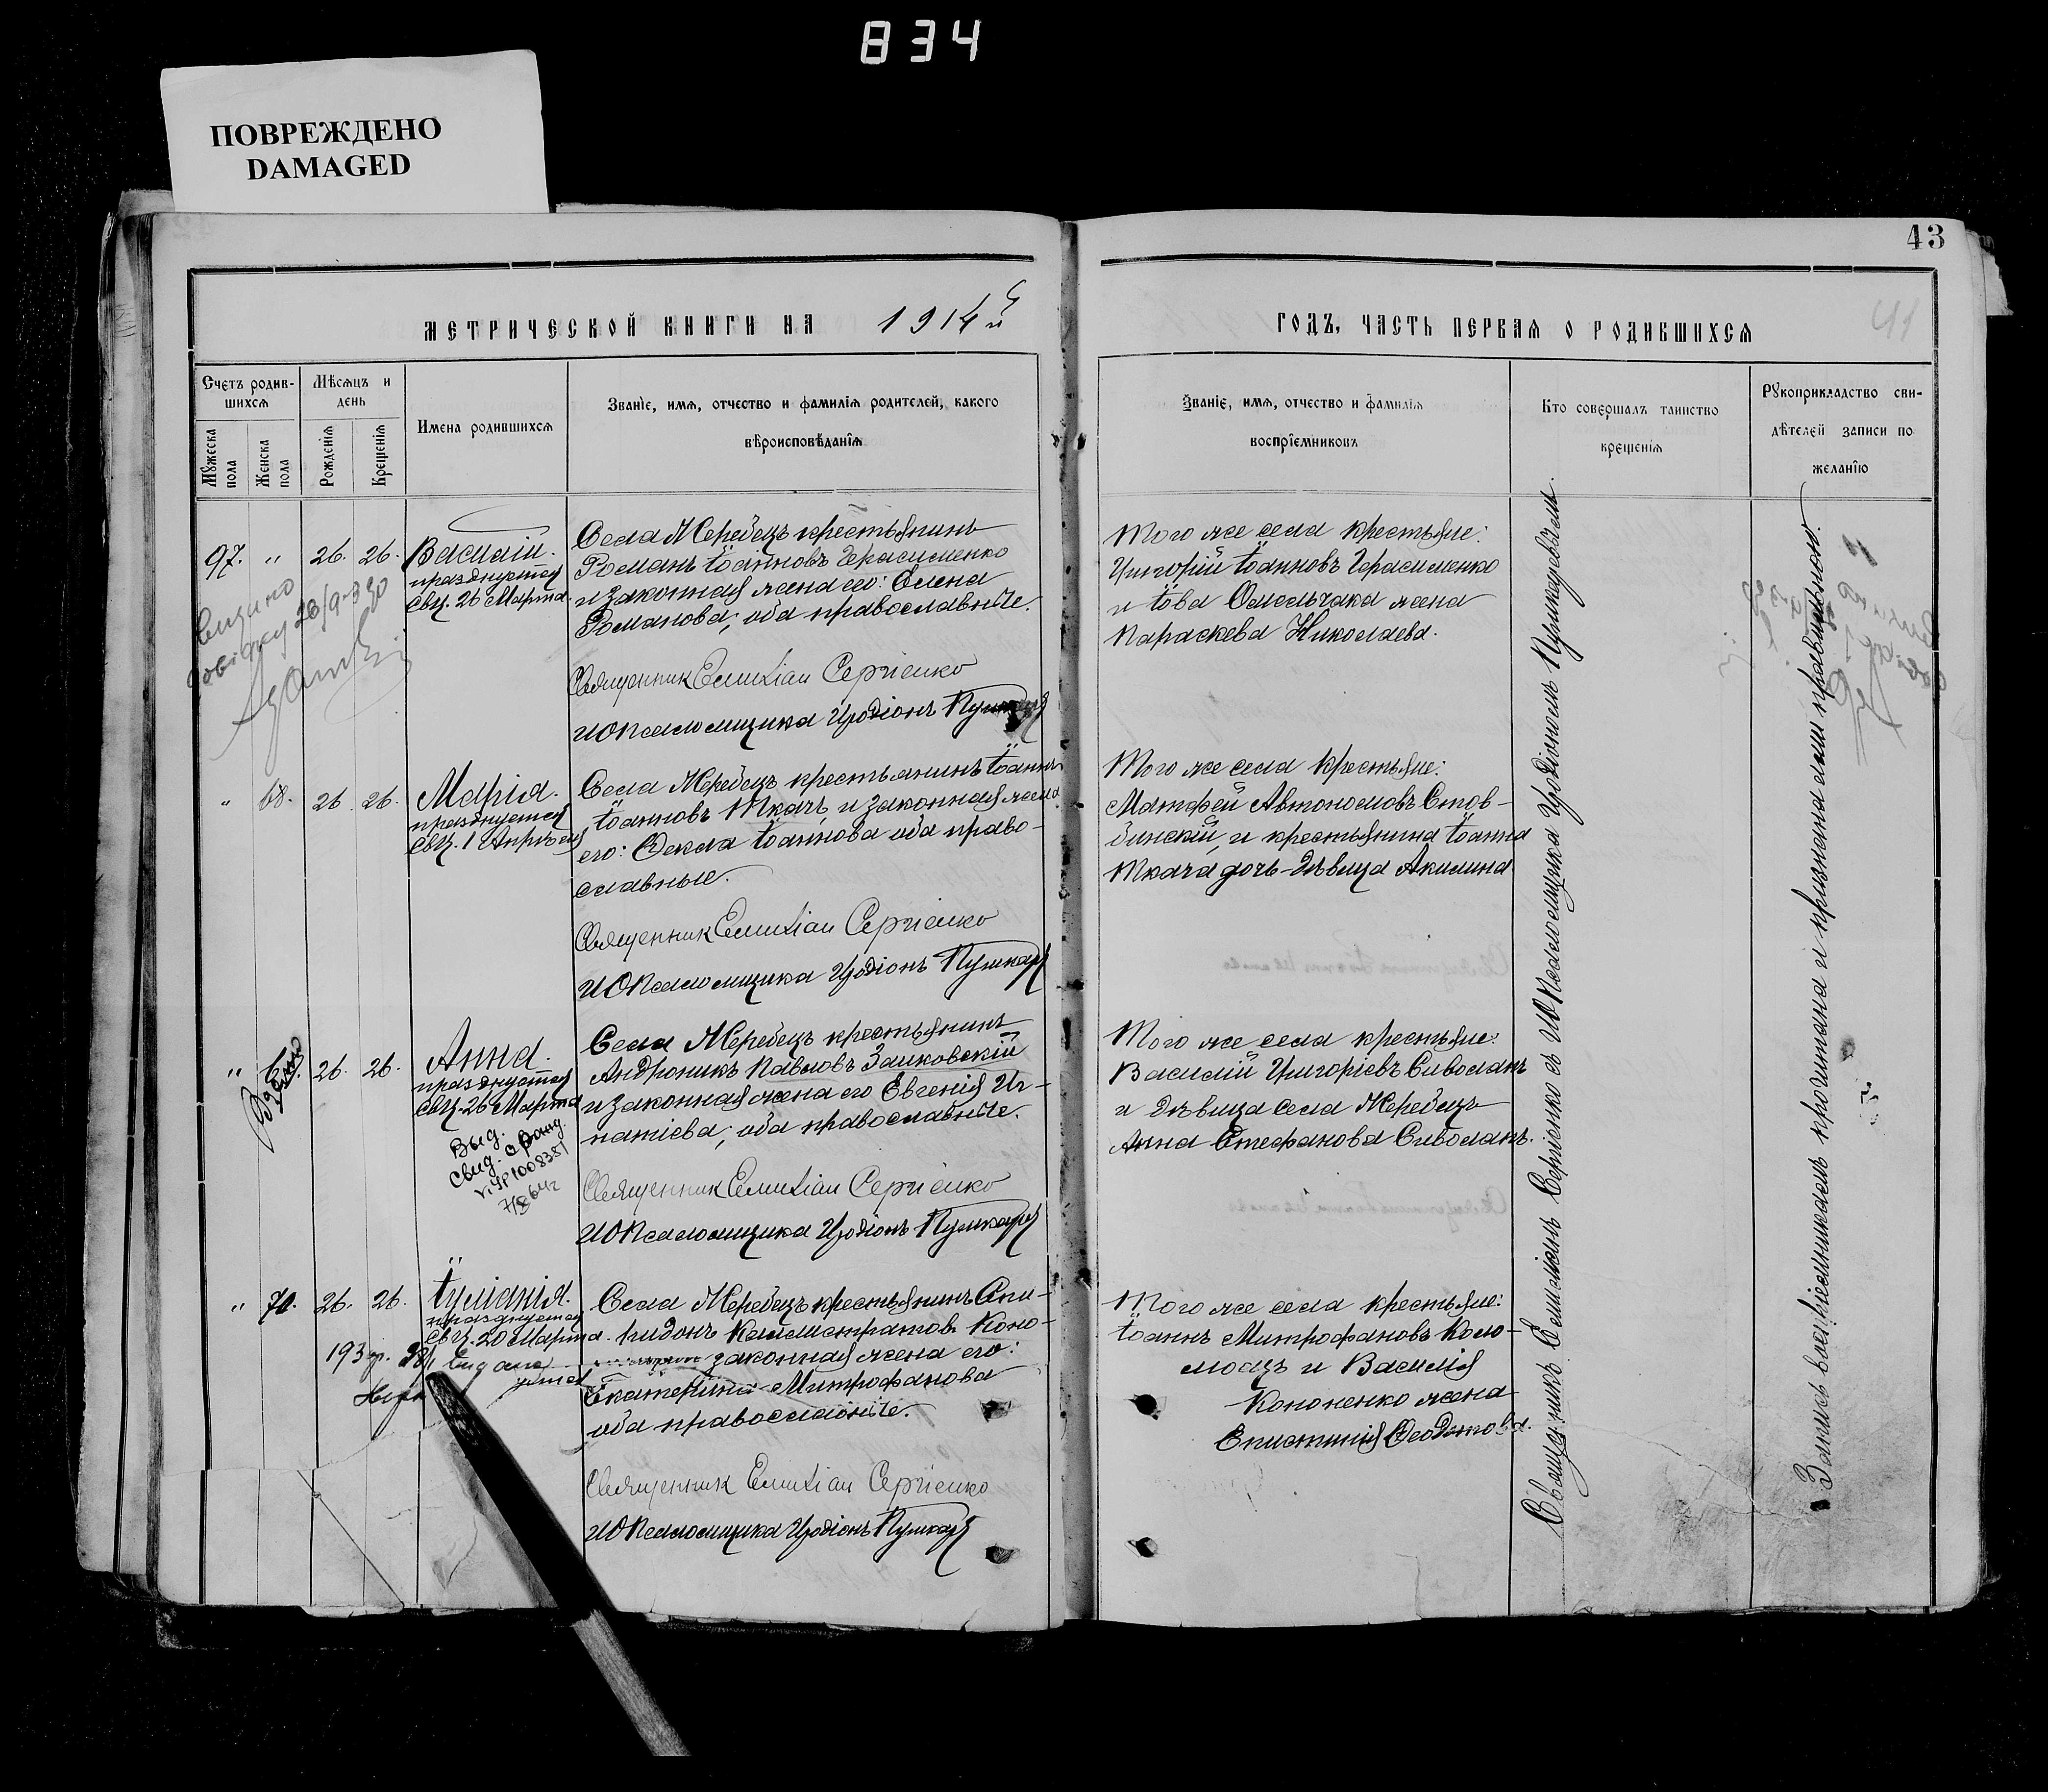 834
ПОВРЕЖДЕНО
DAMAGED
43
41
МЕТРИЧЕСКОЙ КНИГИ НА 1914й
ГОДЪ, ЧАСТЬ ПЕРВАЯ О РОДИВШИХСЯ
Счетъ родив-
шихся
Мужеска
пола
Женска
пола
Мѣсяцъ и
день
Рожденія
Крещенія
Имена родившихся
Званіе, имя, отчество и фамилія родителей, какого
вѣроисповѣданія
Званіе, имя, отчество и фамилія
воспріемниковъ
Кто совершалъ таинство
крещенія
Рукоприкладство сви-
дѣтелей записи по
желанію
97. " 26. 26.
Василій.
празднуется
свц. 26 Марта.
Села Жеребецъ крестьянинъ
Романъ Іоанновъ Герасименко
и законная жена его: Елена
Романова; оба православные.
Священник Емилian Сергіенко
ИО Псаломщика Иродіонъ Пушкарь
Того же села крестьяне:
Григорій Іоанновъ Герасименко
и Іова Омельчака жена
Параскева Николаева.
" 68. 26. 26.
Марія.
празднуется
свц. 1 Апрѣля
Села Жеребецъ крестьянинъ Іоаннъ
Іоанновъ Ткачъ, и законная жена
его: Фекла Іоаннова оба право-
славные.
Священник Емилian Сергіенко
ИО Псаломщика Иродіонъ Пушкарь
Того же села крестьяне:
Матфей Автономовъ Стов-
бинскій, и крестьянина Іоанна
Ткача дочь-дѣвица Акилина
" 26. 26.
Анна.
празднуется
свц. 26 Марта
Выд.
свид. о рожд.
7/8 64г
Села Жеребецъ крестьянинъ
Андроникъ Павловъ Заиковскій
и законная жена его Евгенія Иг-
натіева; оба православные.
Священник Емилian Сергіенко
ИО Псаломщика Иродіонъ Пушкарь
Того же села крестьяне:
Василій Григоріевъ Сиволапъ
и дѣвица села Жеребецъ
Анна Стефанова Сиволапъ.
" 70. 26. 26.
Іуліанія.
празднуется
свц. 20 Марта.
Села Жеребецъ крестьянинъ Спи-
ридонъ Каллистратов. Коно-
законная жена его:
Екатерина Митрофанова
оба православные.
Священник Емилian Сергіенко
ИО Псаломщика Иродіонъ Пушкарь
Того же села крестьяне:
Іоаннъ Митрофановъ Коло-
моецъ и Василія
Кононенко жена
Епистимія Феодотова.
Священникъ Емиліанъ Сергіенко съ ИО Псаломщика Иродіономъ Пушкаревымъ.
Запись воспріемникамъ прочитана и признана ими правильною.